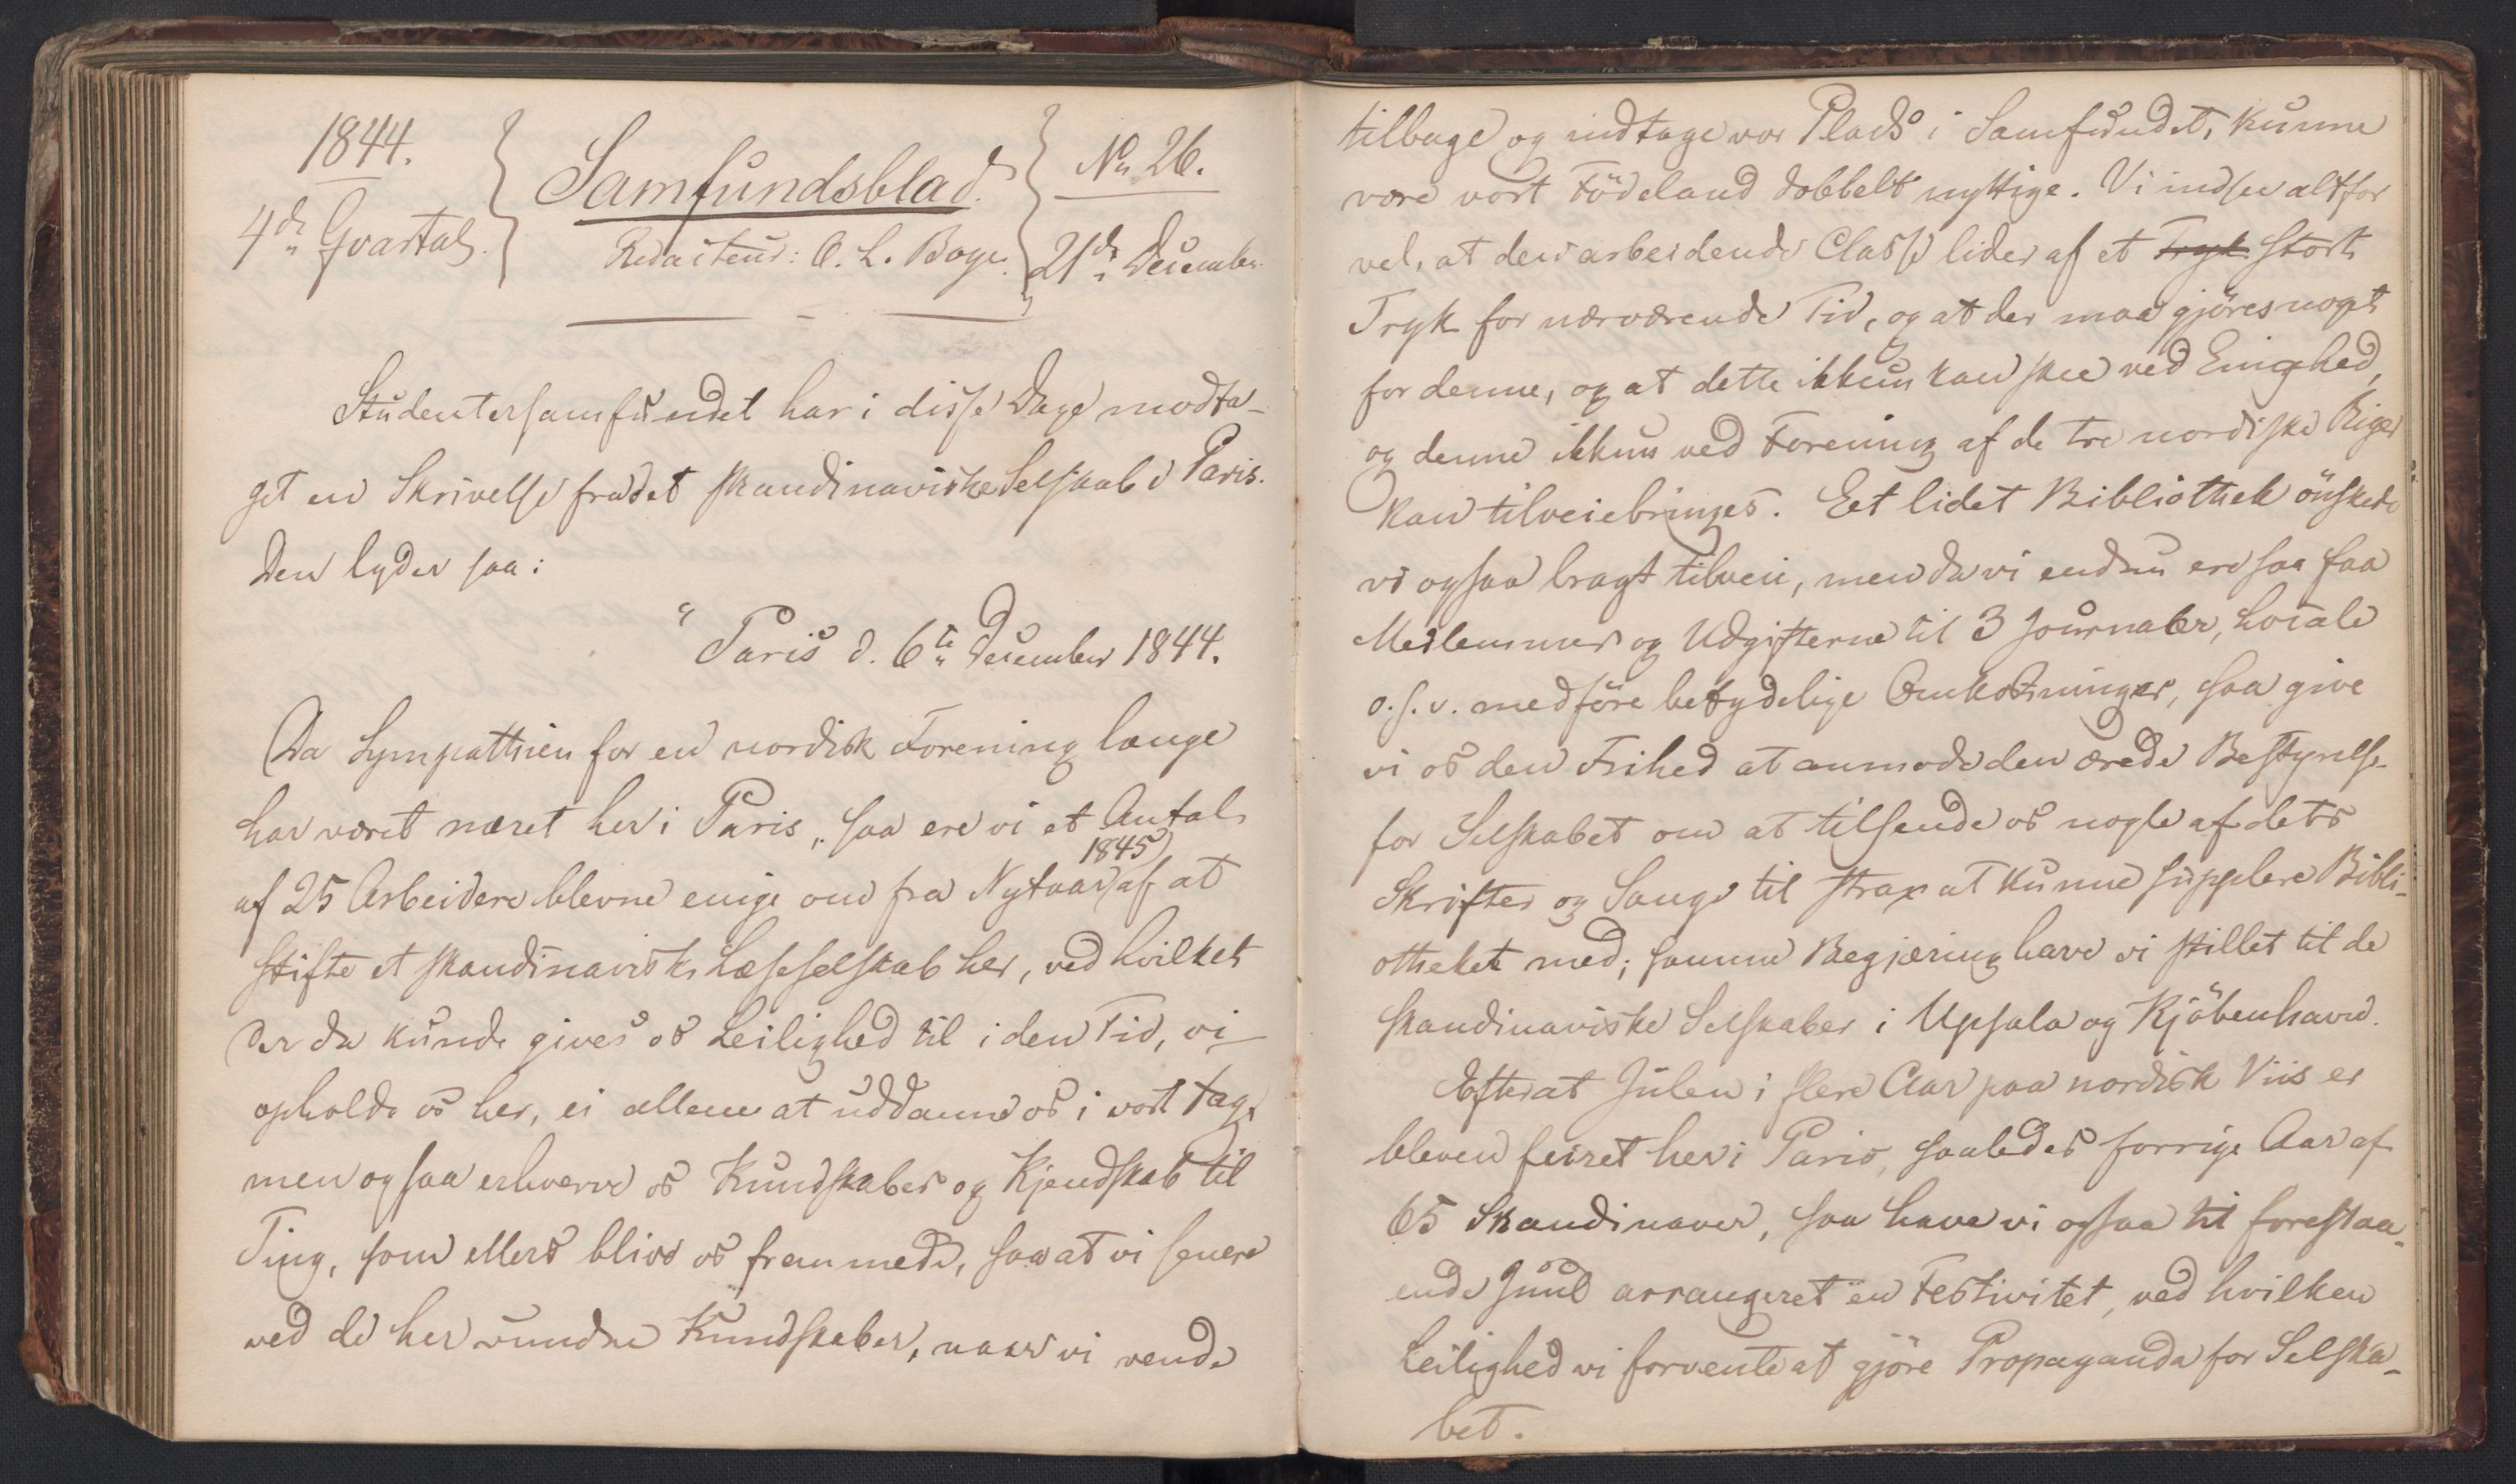 1844.
4de Qvartal.
Samfundsblad.
Redacteur: O. L. Bage.
No 26.
21de December
Studentersamfundet har i disse Dage modta-
get en Skrivelse fra det skandinaviske Selskab i Paris.
Den lyder saa:
"Paris d. 6te December 1844.
Da Sympathien for en nordisk Forening længe
har været næret her i Paris, saa ere vi et Antal
1845
af 25 Arbeidere blevne enige om fra Nytaar af at
stifte et skandinavisk Læseselskab her, ved hvilket
der da kunde gives os Leilighed til i den Tid, vi
opholde os her, ei allene at uddanne os i vort Fag,
men ogsaa erhverve os Kundskaber og Kjendskab til
Ting, som ellers blive os fremmede, saa at vi senere
ved de her vundne Kundskaber, naar vi vende
tilbage og indtage vor Plads i Samfundet, kunne
være vort Födeland dobbelt nyttige. Vi indsee altfor
vel, at den arbeidende Classe lider af et Tryk stort
Tryk for nærværende Tid, og at der maa gjöres noget
for denne, og at dette ikkun kan skee ved Enighed,
og denne ikkun ved Forening af de tre nordiske Riger
kan tilveiebringes. Eet lidet Bibliothek önskede
vi ogsaa bragt tilveie, men da vi endnu ere saa faa
Medlemmer og Udgifterne til 3 Journaler, Locale
o. s. v. medföre betydelige Omkostninger, saa give
vi os den Frihed at anmode den ærede Bestyrelse
for Selskabet om at tilsende os nogle af dets
Skrifter og Sange til strax at kunne supplere Bibli-
otheket med; samme Begjæring have vi stillet til de
skandinaviske Selskaber i Upsala og Kjöbenhavn.
Efterat Julen i flere Aar paa nordisk Viis er
bleven feiret her i Paris, saaledes forrige Aar af
65 Skandinaver, saa have vi ogsaa til forestaa-
ende Juul arrangeret en Festivitet, ved hvilken
Leilighed vi forvente at gjöre Propaganda for Selska-
bet.